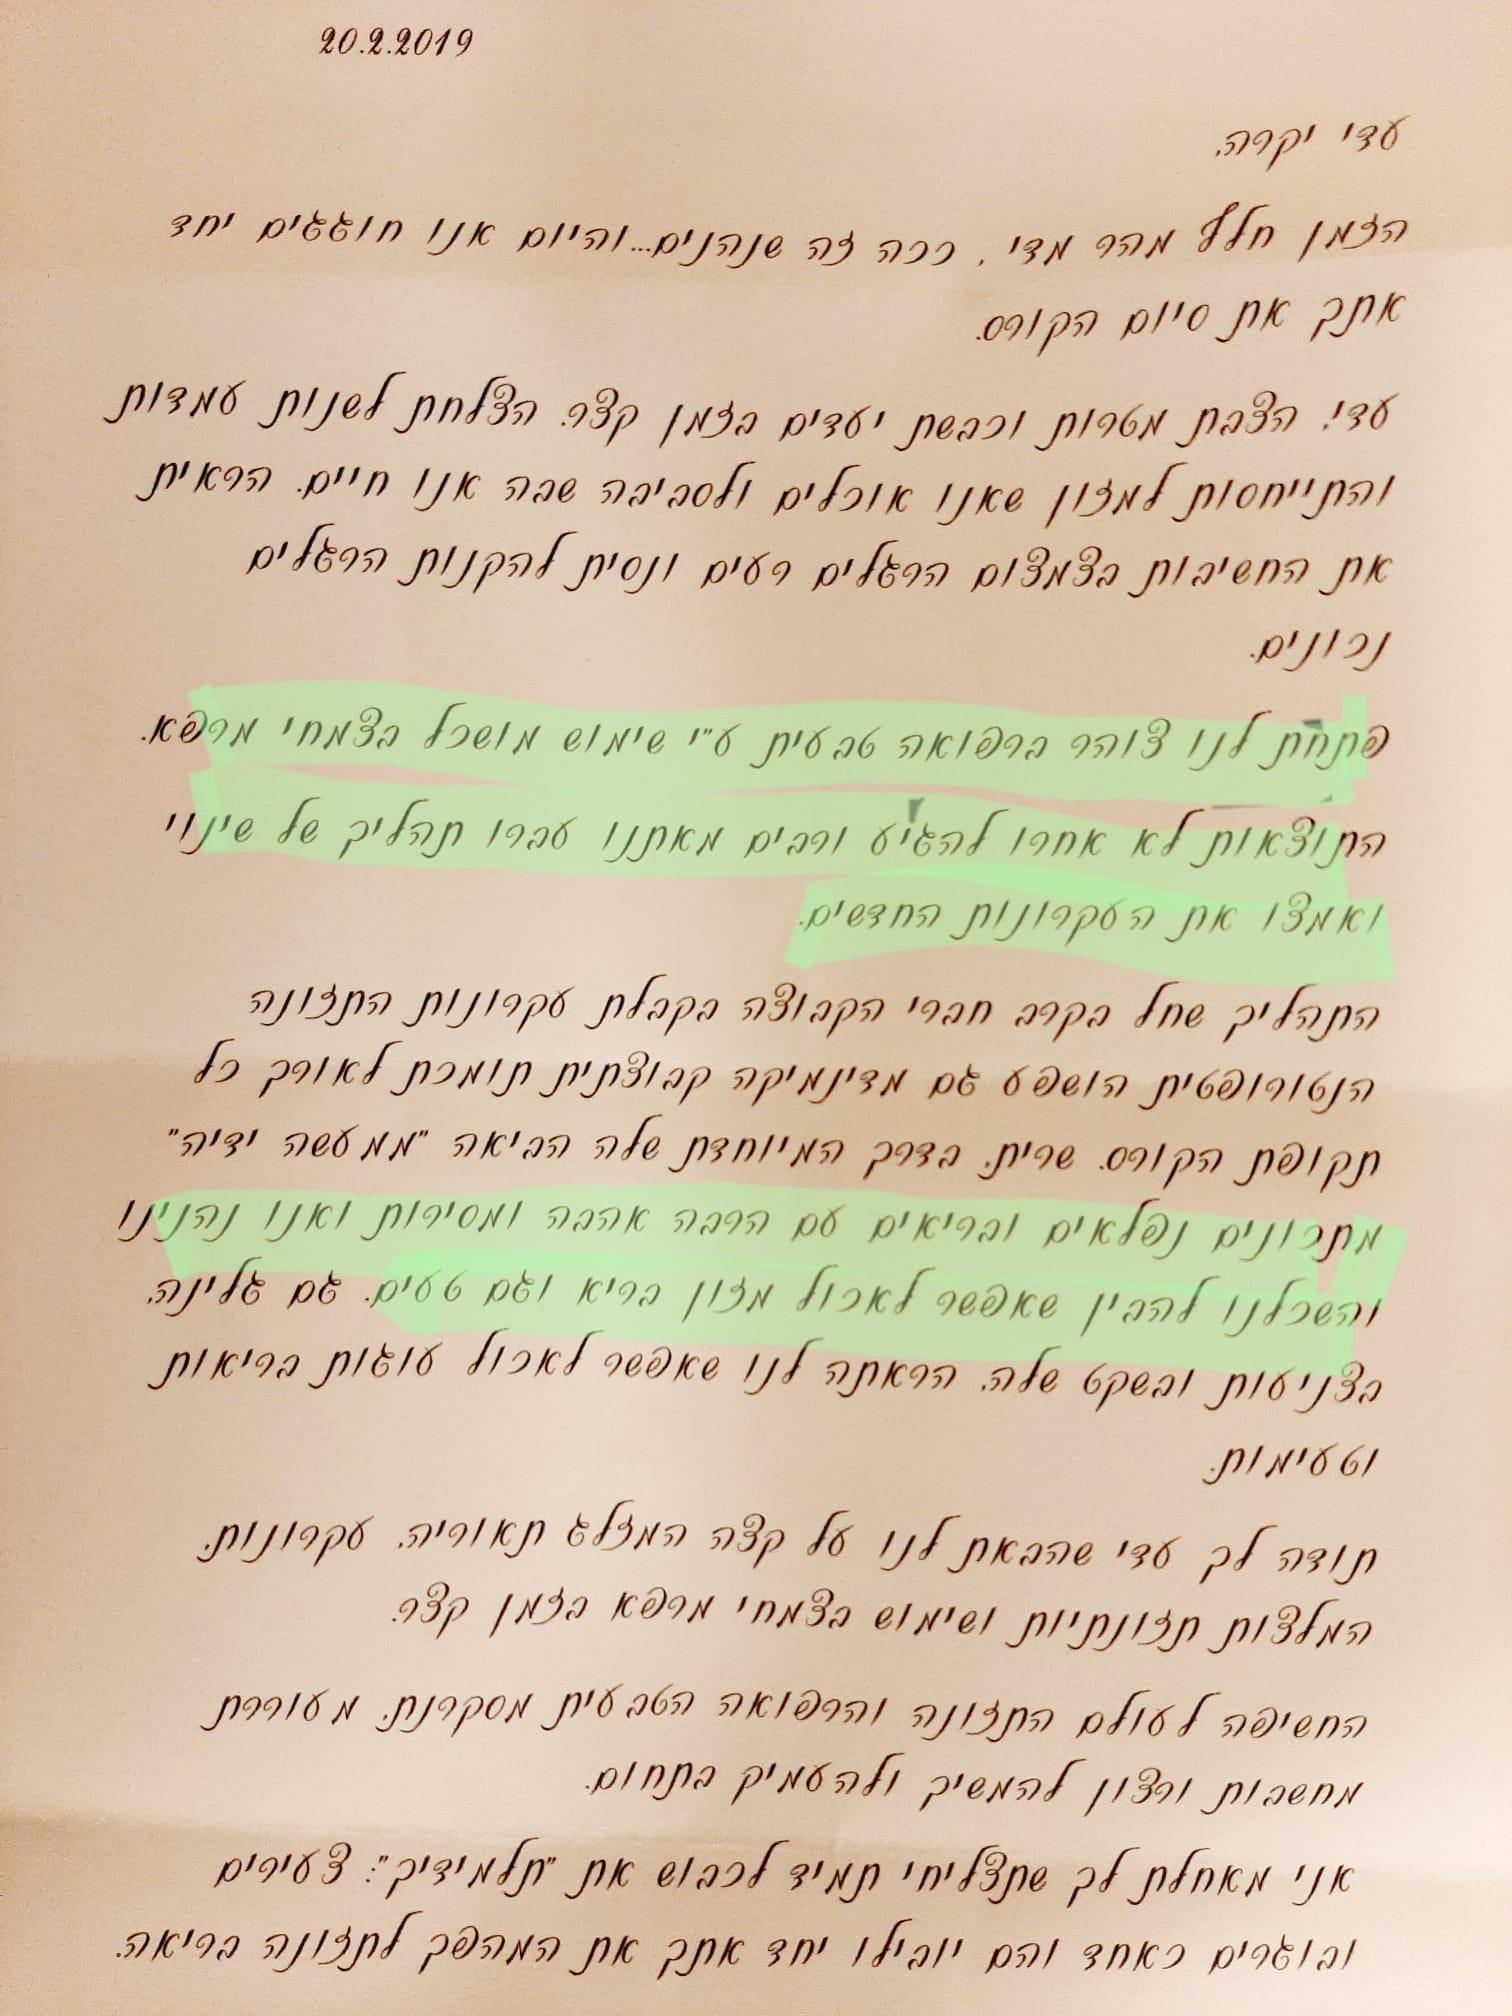 20.2.2019
עדי יקרה,
הזמן חלף מהר מדי, ככה זה שנהנים...והיום אנו חוגגים יחד
אתך את סיום הקורס.
עדי, הצבת מטרות וכבשת יעדים בזמן קצר. הצלחת לשנות עמדות
והתייחסות למזון שאנו אוכלים ולסביבה שבה אנו חיים. הראית
את החשיבות בצמצום הרגלים רעים ונסית להקנות הרגלים
נכונים.
פתחת לנו צוהר ברפואה טבעית ע"י שימוש מושכל בצמחי מרפא.
התוצאות לא אחרו להגיע ורבים מאתנו עברו תהליך של שינוי
ואמצו את העקרונות החדשים.
התהליך שחל בקרב חברי הקבוצה בקבלת עקרונות התזונה
הנטורופטית הושפע גם מדינמיקה קבוצתית תומכת לאורך כל
תקופת הקורס. שרית, בדרך המיוחדת שלה הביאה "ממעשה ידיה"
מתכונים נפלאים ובריאים עם הרבה אהבה ומסירות ואנו נהנינו
והשכלנו להבין שאפשר לאכול מזון בריא וגם טעים. גם גלינה,
בצניעות ובשקט שלה, הראתה לנו שאפשר לאכול עוגות בריאות
וטעימות.
תודה לך עדי שהבאת לנו על קצה המזלג תאוריה, עקרונות,
המלצות תזונתיות ושימוש בצמחי מרפא בזמן קצר.
החשיפה לעולם התזונה והרפואה הטבעית מסקרנת, מעוררת
מחשבות ורצון להמשיך ולהעמיק בתחום.
אני מאחלת לך שתצליחי תמיד לכבוש את "תלמידיך": צעירים
ובוגרים כאחד והם יובילו יחד אתך את המהפך לתזונה בריאה.